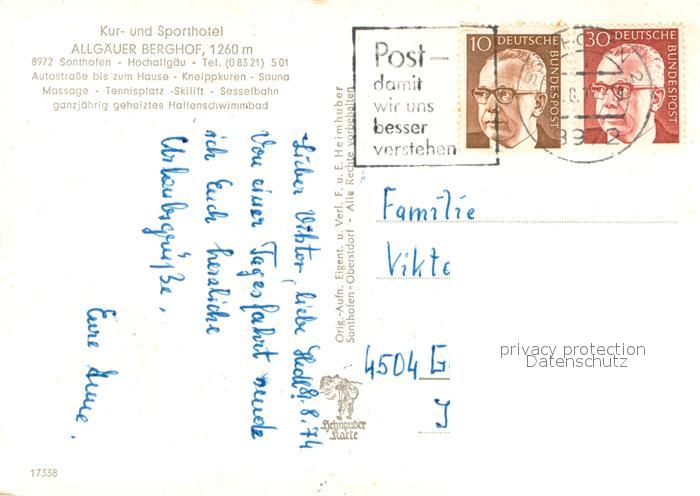 Kur- und Sporthotel
ALLGÄUER BERGHOF, 1260 m
8972 Sonthofen - Hochallgäu - Tel. (0 83 21) 5 01
Autostraße bis zum Hause - Kneippkuren - Sauna
Massage - Tennisplatz - Skilift - Sesselbahn
ganzjährig geheiztes Hallenschwimmbad
8. 74
Lieber Viktor, liebe
Von einer Tagesfahrt sende
ich Euch herzliche
Urlaubsgrüße,
Eure Anne.
17338
Orig.-Aufn. Eigent. u. Verl. F. u. E. Heimhuber
Sonthofen-Oberstdorf - Alle Rechte vorbehalten
Heimhuber
Karte
Post-
damit
wir uns
besser
verstehen
10 DEUTSCHE
BUNDESPOST
30 DEUTSCHE
BUNDESPOST
8972
Familie
Vikto
4504 G
privacy protection
Datenschutz